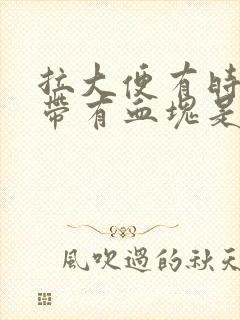 拉大便有時
帶有血塊是
風吹過的秋天